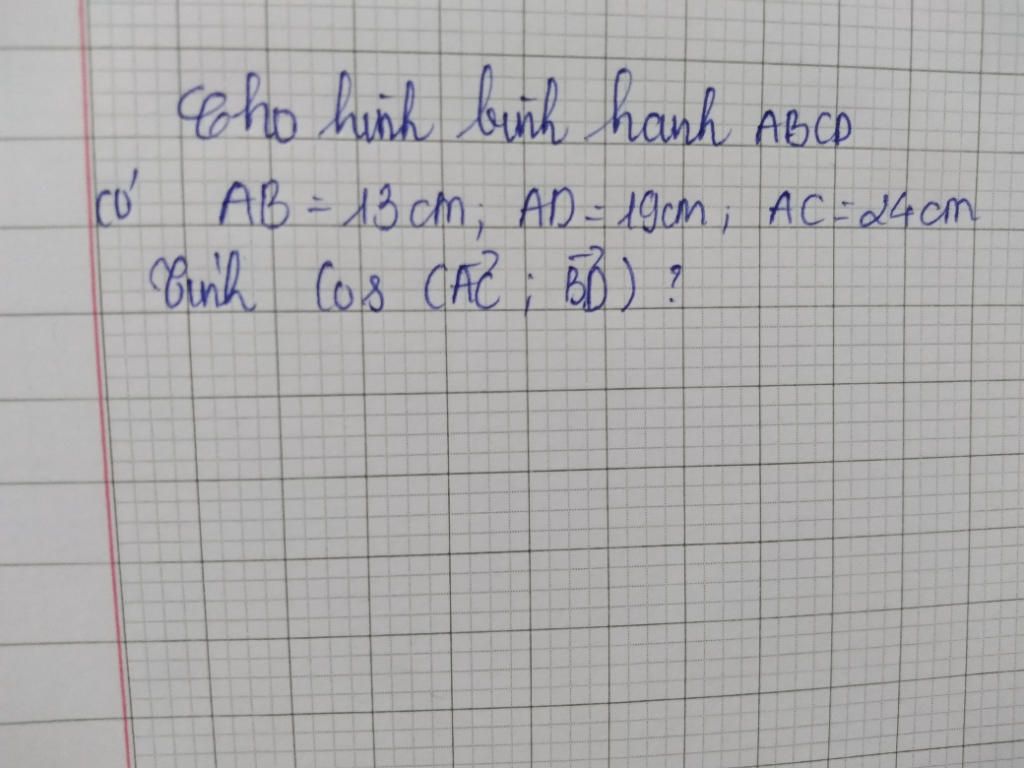 Cho hình bình hanh ABCD
có AB = 13 cm; AD = 19cm; AC = 24 cm
Tính Cos (\overrightarrow{AC}; \overrightarrow{BD}) ?